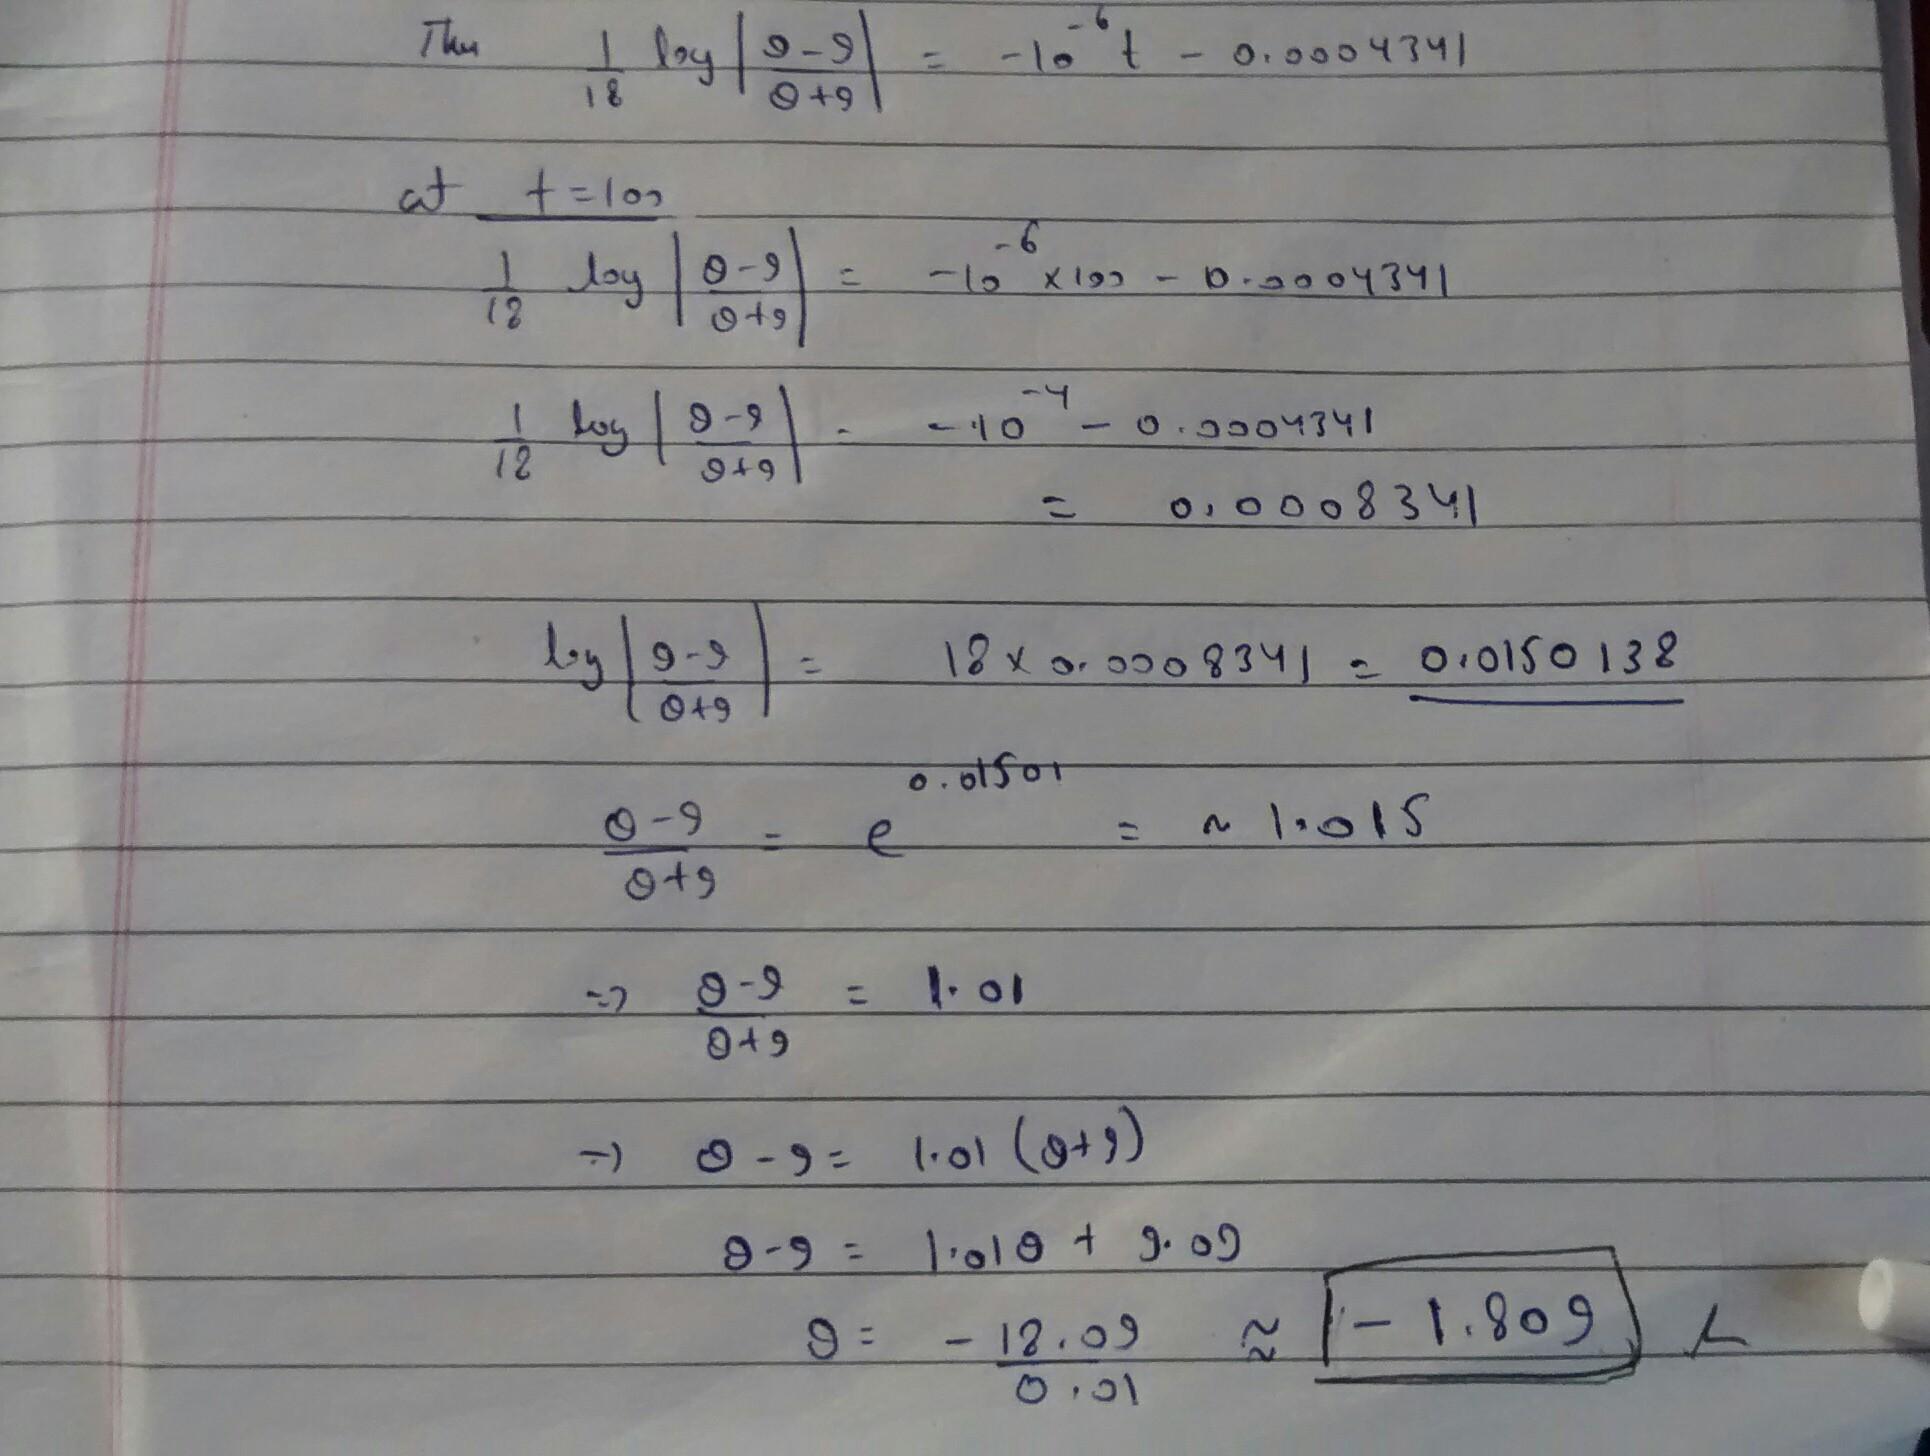 Thus 1/18 log |θ-9/θ+9| = -10^-6 t - 0.0004341
at t=100
1/18 log |θ-9/θ+9| = -10^-6 x 100 - 0.0004341
1/18 log |θ-9/θ+9| = -10^-4 - 0.0004341
= 0.0008341
log |θ-9/θ+9| = 18 x 0.0008341 = 0.0150138
θ-9/θ+9 = e^0.01501 = ~ 1.015
=> θ-9/θ+9 = 1.01
=> θ-9 = 1.01 (θ+9)
θ-9 = 1.01θ + 9.09
θ = -18.09/0.01 ≈ -1.809